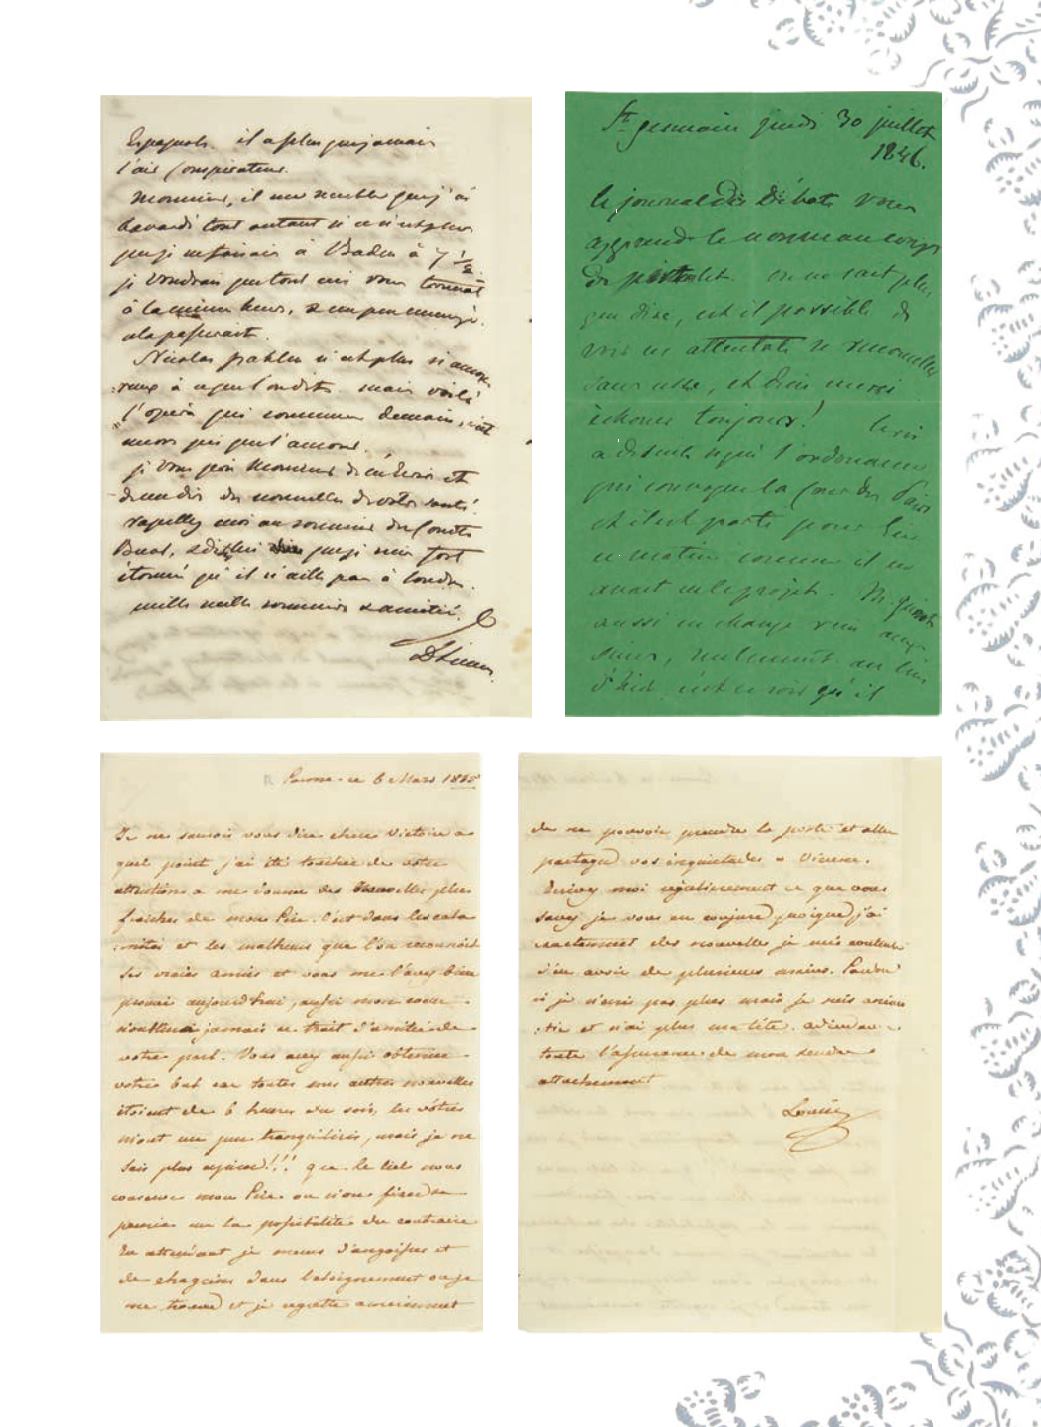 Espagnols. il a plus que jamais
l'air conspirateur.
Monsieur, il me semble que j'ai
bavardé tout autant si ce n'est plus
que je ne faisais à Baden à 7 1/2
je voudrais que tout ceci vous
à la même heure, & un peu
cela passerait.
Nicolas Pahlen n'est plus si amou-
reux à ce que l'on dit. mais voilà
l'opéra qui commence demain, c'est
encore pis que l'amour.
je vous prie Monsieur de m'écrire et
de me dire des nouvelles de votre santé.
rappelez moi au souvenir du Comte
Buol, & dites lui que je suis fort
étonnée qu'il n'aille pas à Londres.
mille mille souvenirs & amitié.
D Lieven.
St germain jeudi 30 juillet
1846.
le journal des Débats vous
apprendra le nouveau coup
de pistolet. on ne sait plus
que dire, est il possible de
voir ces attentats se renouveller
sans cesse, et dieu merci
échouer toujours! le roi
a de suite signé l'ordonnance
qui convoque la Cour des Pairs
et il est parti pour Eu
ce matin comme il en
avait eu le projet. M. Guizot
aussi ne change rien aux
siens, seulement au lieu
d'hier c'est ce soir qu'il
Parme ce 6 Mars 1835
Je ne saurois vous dire chere Victoire a
quel point j'ai été touchée de votre
attention a me donner des nouvelles plus
fraiches de mon Père. C'est dans les cala-
mités et les malheurs que l'on reconnoit
ses vrais amis et vous me l'avez bien
prouvé aujourd'hui, aussi mon coeur
n'oubliera jamais ce trait d'amitié de
votre part. Vous avez aussi obtenu
votre but car toutes mes autres nouvelles
étoient de 6 heures du soir, les vôtres
m'ont un peu tranquilisée, mais je ne
sais plus!!! que le Ciel nous
conserve mon Père on n'ose fixer sa
pensée sur la possibilité du contraire
En attendant je meurs d'angoisses et
de chagrins dans l'eloignement ou je
me trouve et je regrette amerement
de ne pouvoir prendre la poste et aller
partager vos inquietudes a Vienne.
Ecrivez moi régulierement ce que vous
savez je vous en conjure quoique j'ai
exactement des nouvelles je suis contente
d'en avoir de plusieurs mains. Pardon
si je n'écris pas plus mais je suis anéan-
tie et n'ai plus ma tête. adieu
toute l'assurance de mon tendre
attachement
Louise